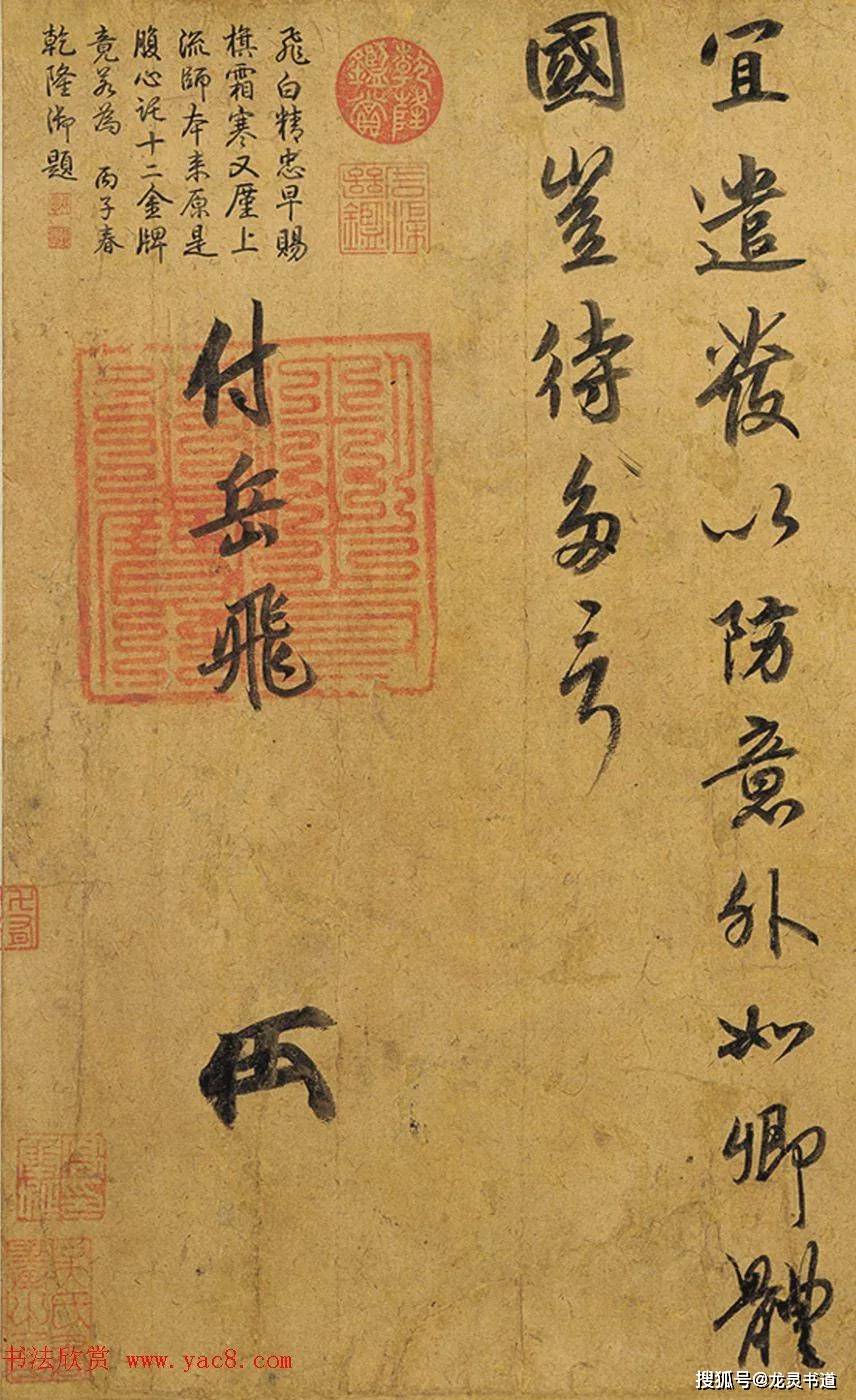 宜遣發以防意外如卿體
國豈待多言
付岳飛
乾隆鑑賞
飛白精忠早賜
旗霜寒又廑上
流師本來原是
腹心託十二金牌
竟若為 丙子春
乾隆御題
书法欣赏 www.yac8.com
搜狐号@龙灵书道